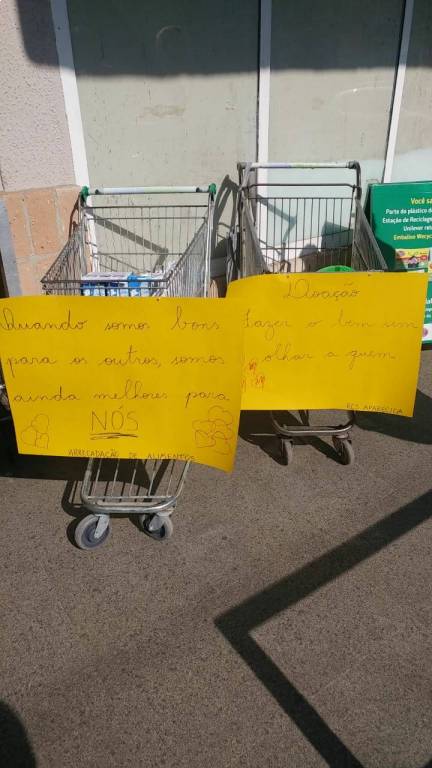 Quando somos bons
para os outros, somos
ainda melhores para
NÓS
ARRECADAÇÃO DE ALIMENTOS
Doação
Fazer o bem sem
olhar a quem
ECS APARECIDA
Você sa
Parte do plástico d
Estação de Reciclage
Unilever reto
Embalixo Wecyc